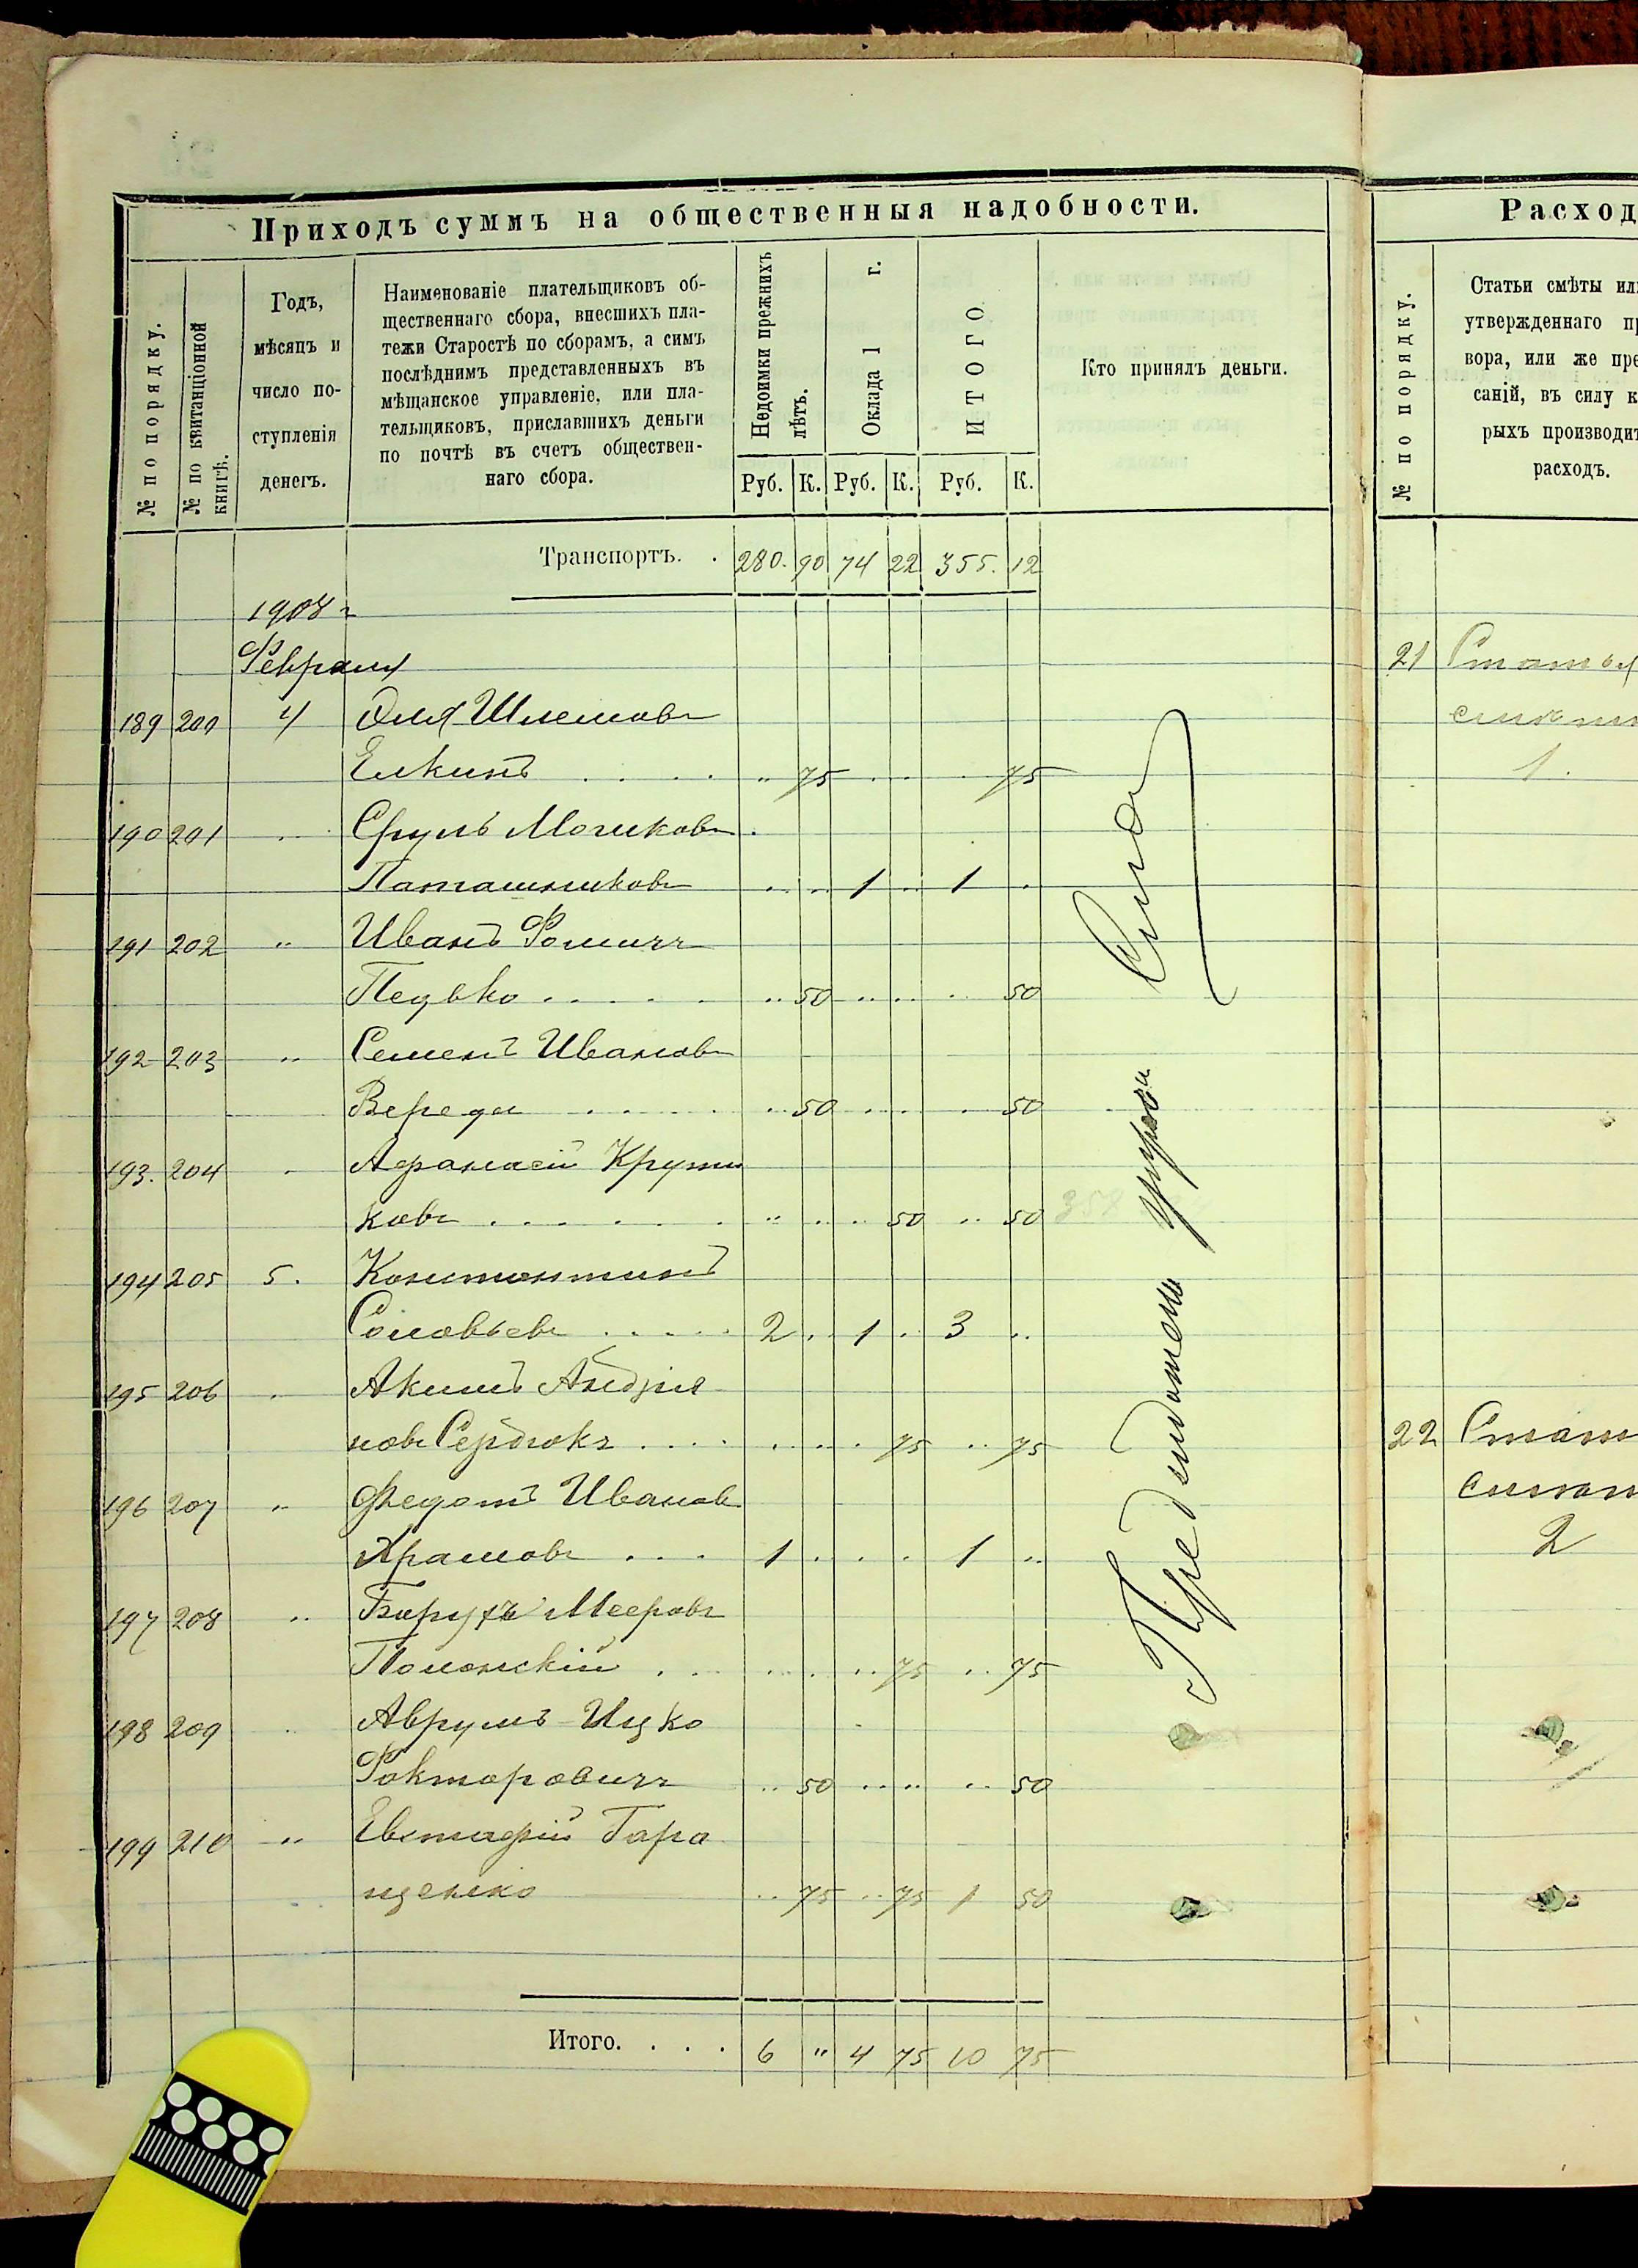 Приходъ суммъ на общественныя надобности.
№ по порядку.
№ по квитанціонной книгѣ.
Годъ,
мѣсяцъ и
число по-
ступленія
денегъ.
Наименованіе плательщиковъ об-
щественнаго сбора, внесшихъ пла-
тежи Старостѣ по сборамъ, а симъ
послѣднимъ представленныхъ въ
мѣщанское управленіе, или пла-
тельщиковъ, приславшихъ деньги
по почтѣ въ счетъ обществен-
наго сбора.
Недоимки прежнихъ
лѣтъ.
Оклада 1 г.
ИТОГО
Кто принялъ деньги.
Руб. К. Руб. К. Руб. К.
Транспортъ. . 280. 90 74 22 355. 12
1908 г
Февраля
189 200 4
Елкинъ . . . . " 75 . . . 75
190 201 " Сруль Мошковъ
Паташниковъ . . 1 . 1 .
191 202 " Иванъ Фомичъ
Педько . . . . . " 50 " . . 50
192 203 " Семенъ Ивановъ
Вереда . . . . " 50 . . . 50
193. 204 " Афанасій Крути
ковъ . . . . . . " . . 50 " 50
194 205 5. Константинъ
Соловьевъ . . . . . 2 . 1 . 3 "
195 206 . Акимъ Андрія
новъ Сердюкъ . . . . . . . 75 " 75
196 207 " Федотъ Ивановъ
Храмовъ . . . 1 . . . 1 "
197 208 " Борухъ Мееровъ
Полонскій . . . . " 75 " 75
198 209 . Аврумъ-Ицко
Факторовичъ " 50 " " " 50
199 210 " Евстафій Гара
щенко " 75 " 75 1 50
Итого. . . . 6 " 4 75 10 75
Расход
№ по порядку.
Статьи смѣты ил
утвержденнаго пр
вора, или же пре
саній, въ силу к
рыхъ производит
расходъ.
21 Статья
1.
22 Стат
2